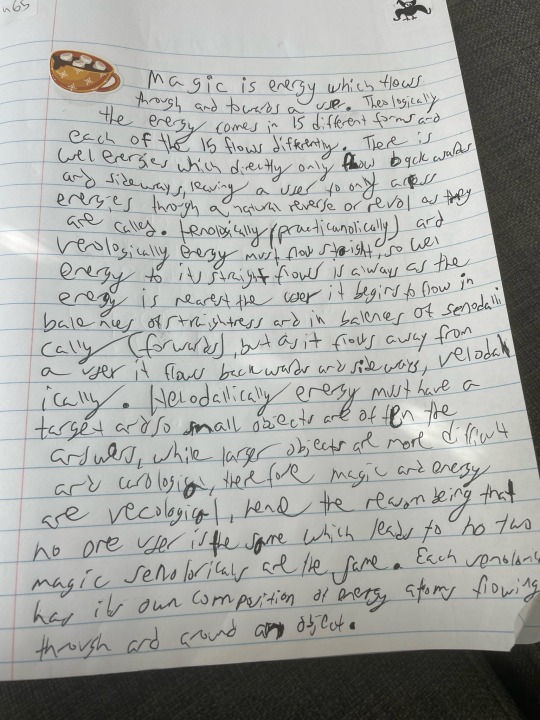 Magic is energy which flows
through and towards a user. Theologically
the energy comes in 15 different forms and
each of the 15 flows differently. There is
wel energies which directly only flow backwards
and sideways, leaving a user to only access
energies through a natural reverse or revol as they
are called. (practicanolically) and
verologically energy must flow straight, so wel
energy to its straight flows is always as the
energy is nearest the user it begins to flow in
balences of straightness and in balences of senodalli
cally (forwards), but as it flows away from
a user it flows backwards and sideways, velodall
ically. Helodallically energy must have a
target and so small objects are often the
answer, while larger objects are more difficult
and , therefore magic and energy
are vecological, the reason being that
no one user is the same which leads to no two
magic are the same. Each
has its own composition of energy atoms flowing
through and around an object.